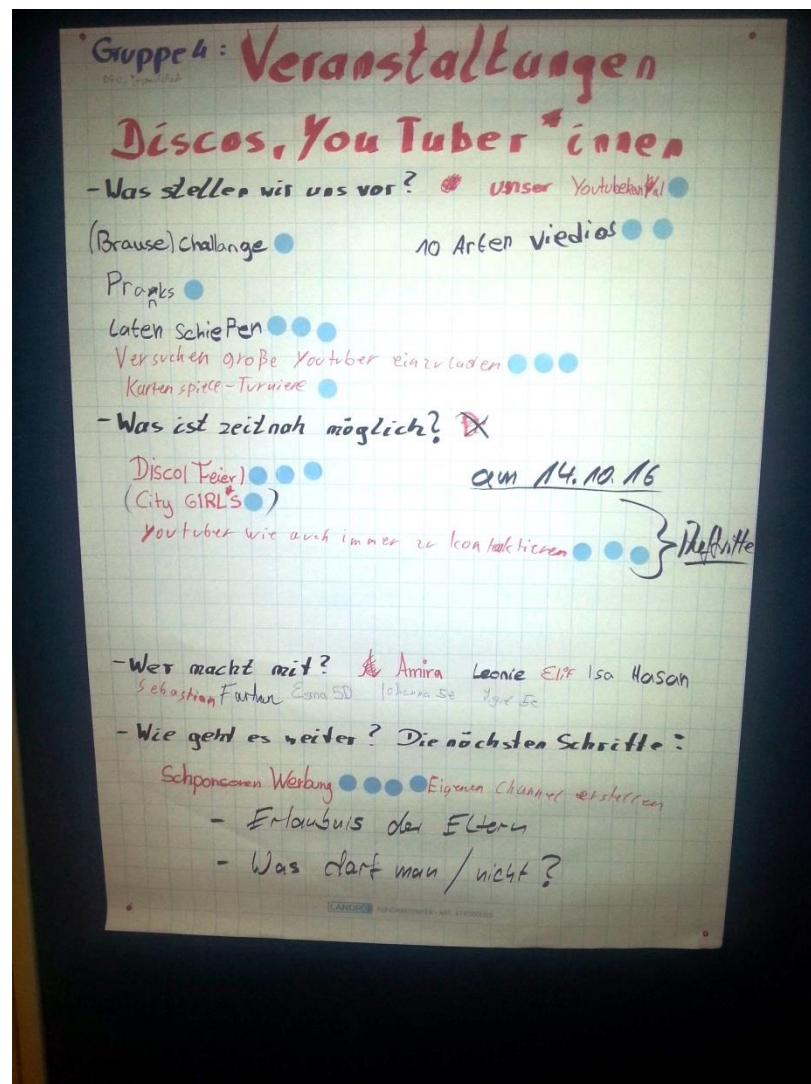 Gruppe 4: Veranstaltungen
Discos, You Tuber*innen
- Was stellen wir uns vor? unser Youtubekanal
(Brause) Challange 10 Arten Viedios
Pranks
Laten Schießen
Versuchen große Youtuber einzuladen
Karten spiele - Turniere
- Was ist zeitnah möglich?
Disco( Feier)
am 14.10.16
(City GIRL'S)
Youtuber wie auch immer zu kontaktieren
- Wer macht mit? Amira Leonie Elif Isa Hasan
Sebastian Esma 5D Johanna 5e 5c
- Wie geht es weiter? Die nächsten Schritte:
Schponsoren Werbung Eigenen Channel erstellen
- Erlaubnis der Eltern
- Was darf man / nicht?
LANDRÉ